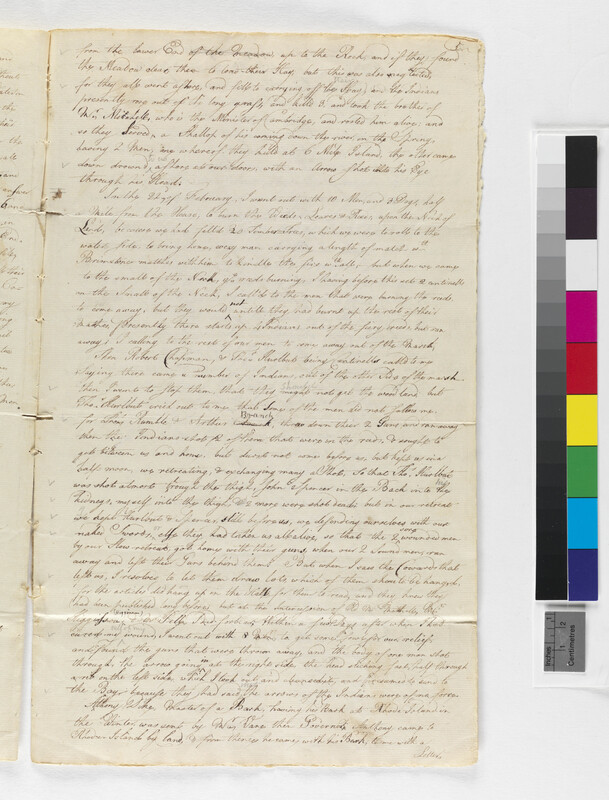 from the lower End of the Meadow up to the Rocks and if they found
the Meadow clear then to their Hay, but this was also neglected,
for they all went ashore and fell to carrying off the Hay, and the Indians
presently rose out of the long grass and killd 3, and took the brother of
Mr. Mitchell, who is the Minister of Cambridge, and rosted him alive; and
so they served a Shallop of his coming down the river in the Spring,
having 2 Men, one whereof they killd at 6 Mile Island, the other came
down drownd ashore at our doors, with an Arrow shot into his Eye
through his Head.
In the 22d of February, I went out with 10 Men and 3 Dogs, half
a Mile from the House, to burn the Weeds, Leaves & Reeds upon the Neck of
Land, because we had felld 20 Timber trees, which we were to roll to the
water side to bring home, every man carrying a length of match with
Brimstone matches with him to kindle the fire withall, but when we came
to the small of the Neck, the weeds burning, I having before this set 2 centinels
on the Small of the Neck, I called to the men that were burning the reeds
to come away, but they would not untill they had burnt up the rest of their
matches. Presently there starts up 4 Indians out of the fiery reeds, but ran
away, I calling to the rest of our men to come away out of the marsh.
Then Robert Chapman, & Thos. Hurlbut being centinels called to me
saying there came a number of Indians out of the other side of the marsh.
Then I went to stop them, that they should not get the wood land, but
Thos. Hurlbut cried out to me that some of the men did not follow me,
for Thos. Rumble & Arthur Branch, threw down their 2 Guns and ran away
then the Indians shot 2 of them that were in the reeds, & sought to
get between us and home, but durst not come before us, but kept us in a
half moon, we retreating, & exchanging many a Shot, So that Thos. Hurlbut
was shot almost through the thigh, John Spencer in the Back into his
kidneys, myself into the thigh, two more were shot dead; but in our retreat
we kept Hurlbut & Spencer still before us, we defending ourselves with our
naked Swords, or else they had taken us all alive, so that the 2 sore wounded men
by our slow retreat, got home with their guns, when our 2 sound men ran
away and left their Guns behind them. But when I saw the Cowards that
left us, I resolved to let them draw lots which of them should be hang'd,
for the articles did hang up in the Hall for them to read, and they knew they
had been published long before, but at the intercession of
Higginson, & Mr. Pell, I did forbear. Within a few days after when I had
cured my wound, I went out with 8 Men to get some fowl for our relief,
and found the guns that were thrown away, and the body of one man shot
through, the arrow going in at the right side the head sticking fast, half through
a rib on the left side which I took out and cleansed it, and presumed to send to
the Bay, because they had said the arrows of the Indians were of no force.
Anthony Dike, Master of a Bark, having his Bark at Rhode Island in
the Winter, was sent by Mr. Vane then Governor. Anthony came to
Rhode-Island by land, & from thence he came with his Bark to me with a
Letter,